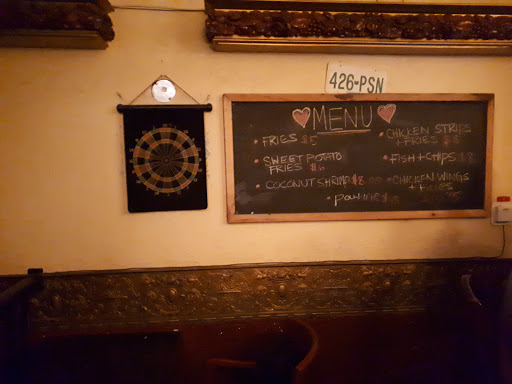 426-PSN
MENU
FRIES $5
SWEET POTATO
FRIES $6
COCONUT SHRIMP $8
CHICKEN STRIPS
+ FRIES $8
FISH + CHIPS $8
CHICKEN WINGS
+ FRIES